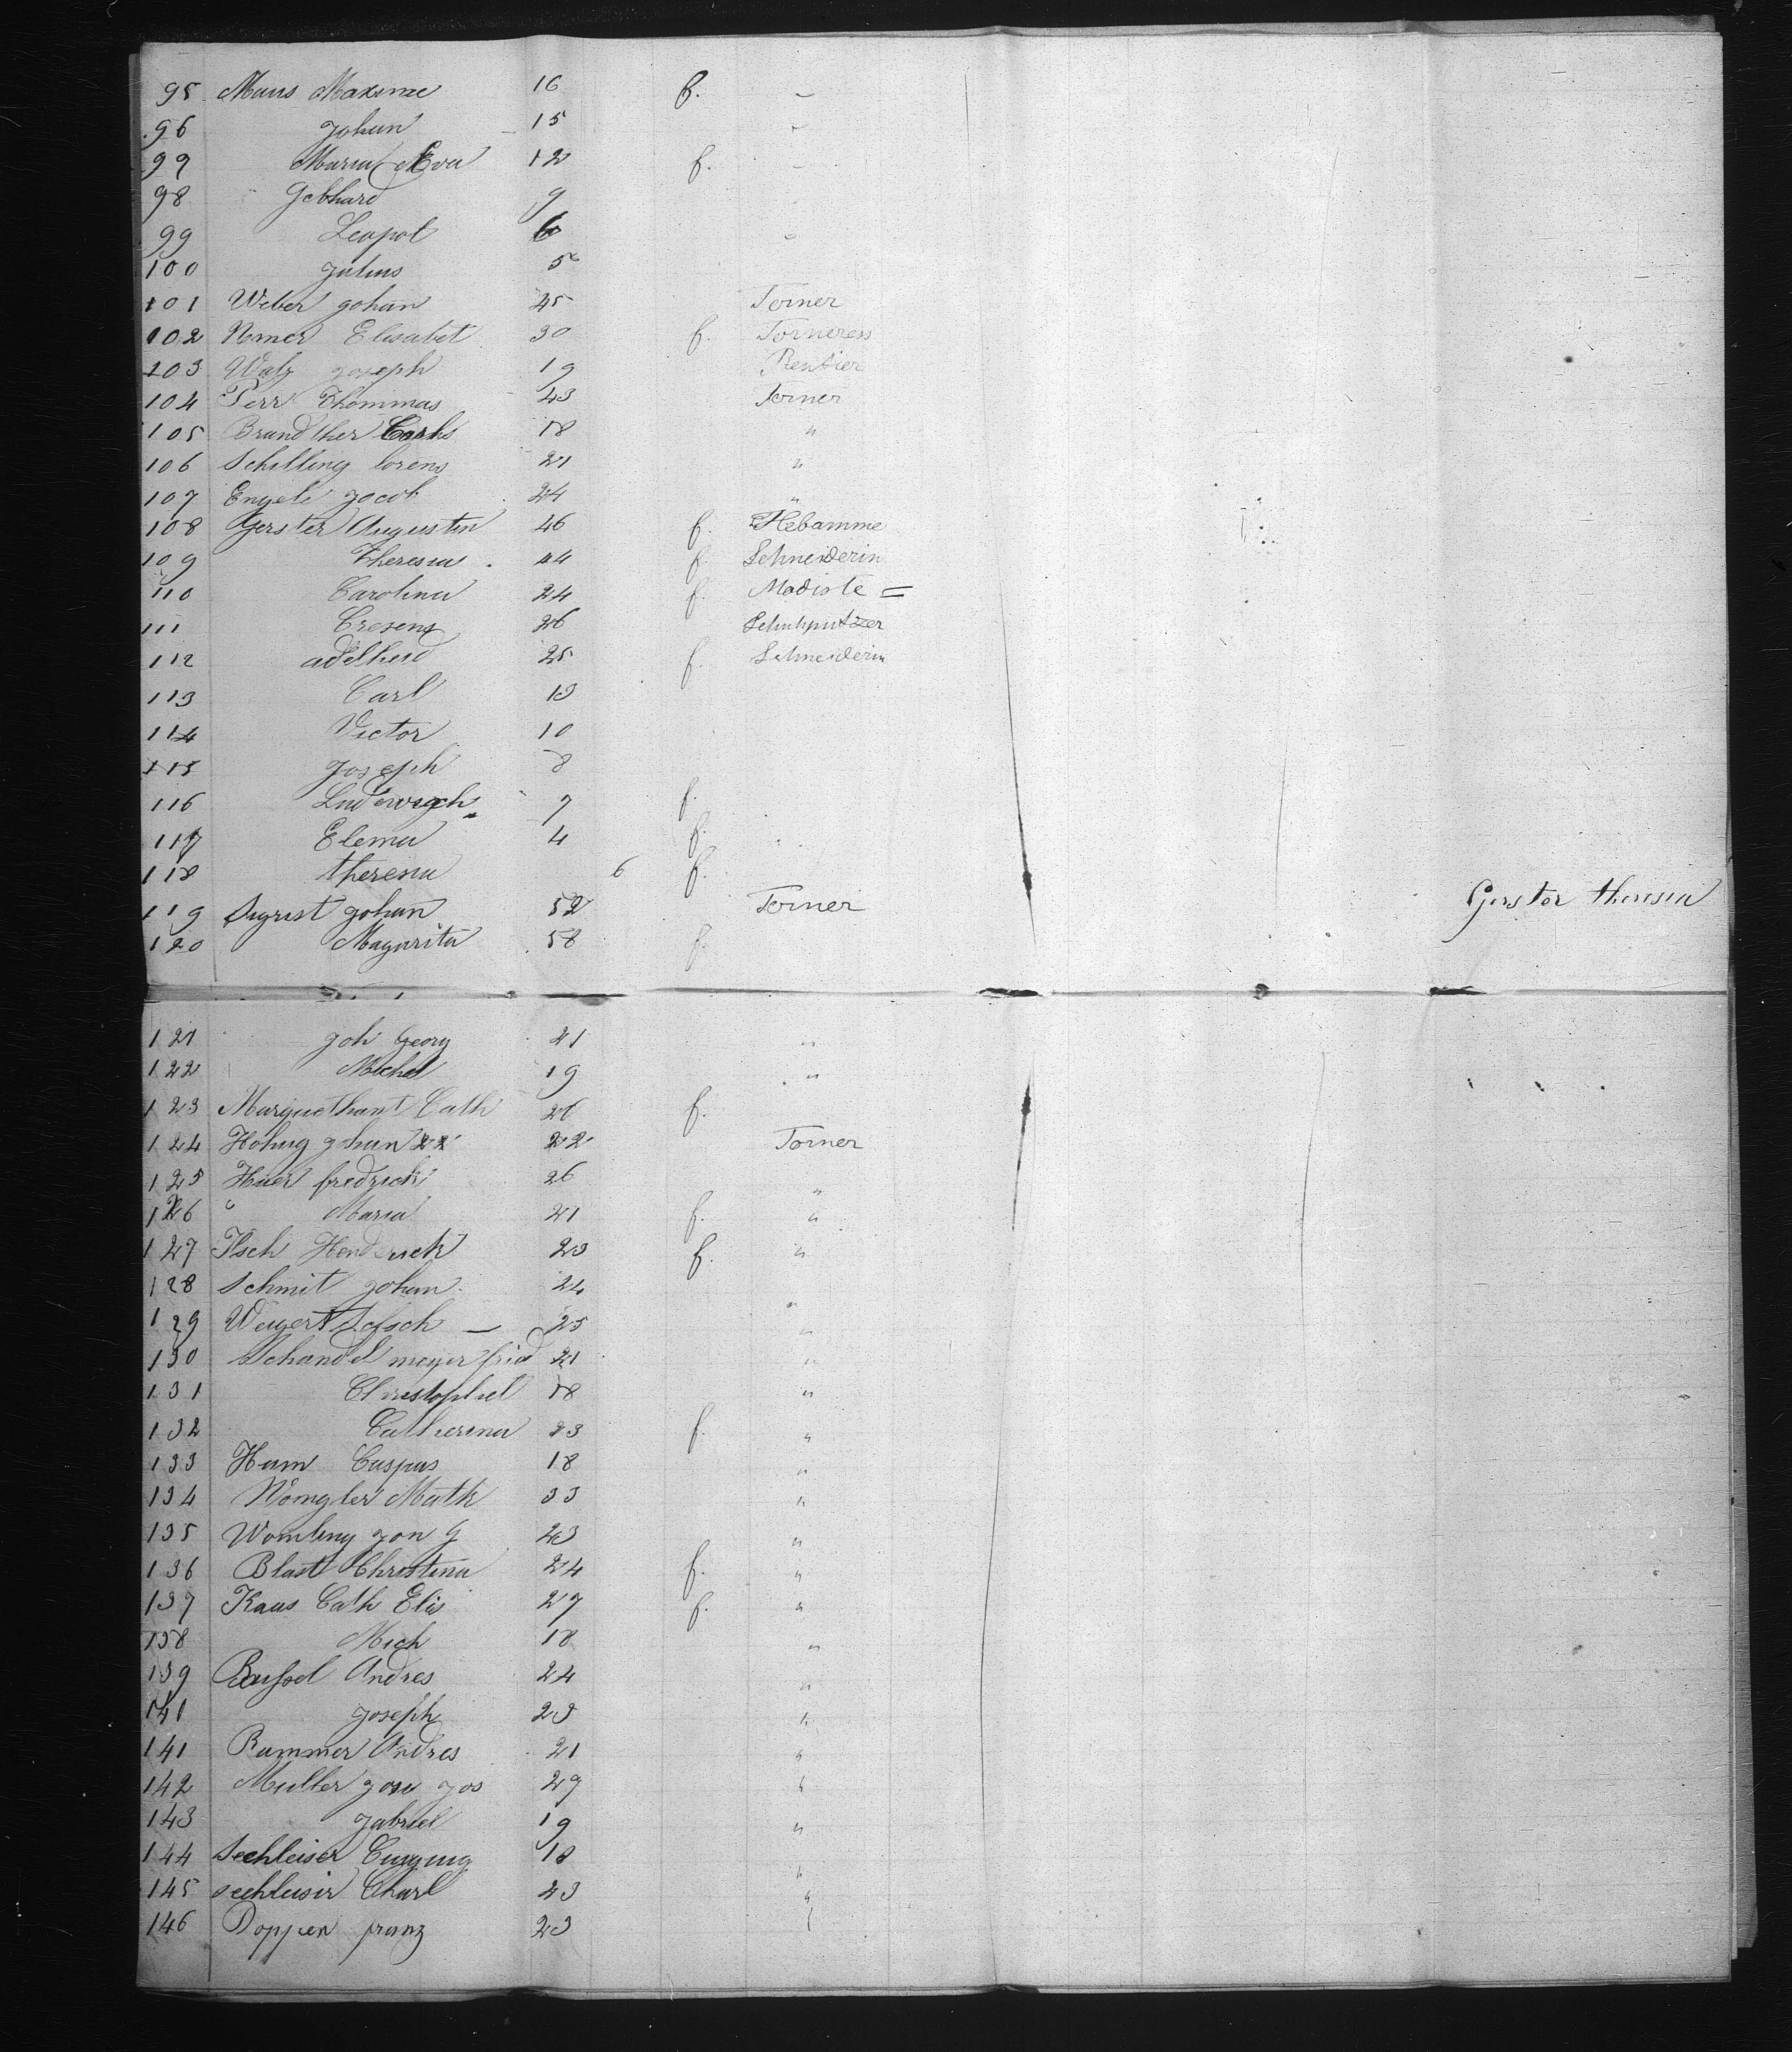 95 Maus Maxime 16 f. "
96 Johan 15 "
97 Maria Eva 12 f.
98 " Gebhard 9
99 Leopol 6 "
100 Julius 5
101 Weber Johan 45 Torner
102 Elisabet 30 f. Torneress
103 Walz Joseph 19 Rentier
104 Perr Thommas 43 Torner
105 Brandther 18 "
106 Schilling lorens 21 "
107 Engele Jacob 24 "
108 Gerster Augustin 46 f. Hebamme
109 Theresia 44 f. Schneiderin
110 Carolina 24 f. Modiste =
111 Cresenz 26 Schuhputzer
112 adelheid 25 f. Schneiderin
113 Carl 13
114 Victor 10
115 Joseph 8
116 Ludewigch 7 f.
117 Elema 4 f.
118 theresia 6 f.
Gerster theresia
119 Sigrist Johan 52 Torner
120 Magarita 58 f.
121 Joh Georg 21 "
122 Michel 19 "
123 Marguethant Cath 26 f.
124 Johan 22 22 Torner
125 Huer fredrick 26 "
126 " Maria 21 f. "
127 Henderick 23 f. "
128 Schmit Johan 24 "
129 Weigert 25 "
130 Schandelmeyer fried 21 "
131 Christophel 18 "
132 Catherina 23 f. "
133 Ham Caspus 18 "
134 Math 33 "
135 Womling Jon G 23 "
136 Blast Christina 24 f. "
137 Kaus Cath Elis 27 f. "
138 Mich 18 "
139 Andres 24 "
141 Joseph 23 "
141 Rammer Andres 21 "
142 Muller Jos 29 "
143 Jabriel 19 "
144 Sechleiser 18 "
145 sechleisir Charl 23 "
146 Doppen franz 23